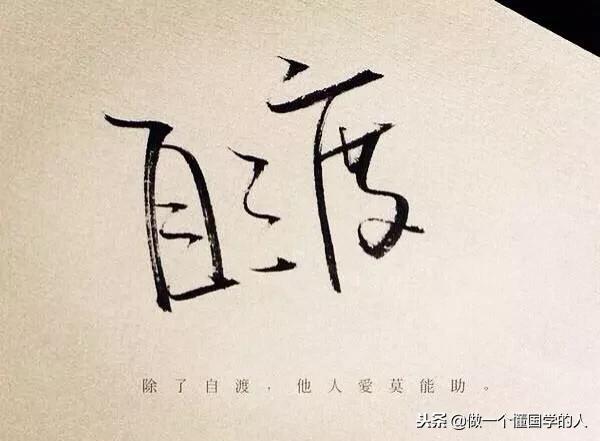 自渡
除了自渡，他人愛莫能助。
头条 @做一个懂国学的人